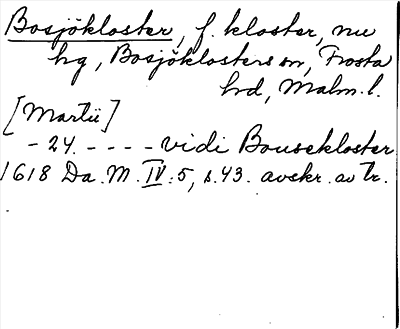 Bosjökloster, f. kloster, nu
hg, Bosjöklosters sn, Frosta
hd, Malm. l.
[Martii]
- 24. - - - - vidi Bousekloster
1618 Da. M. IV: 5, s. 43. avskr. av tr.